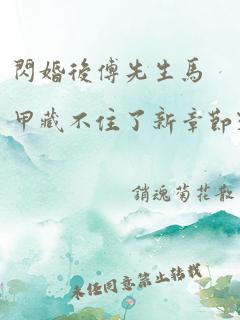 閃婚後傅先生馬
甲藏不住了新章節
銷魂菊花散
未經同意禁止轉載